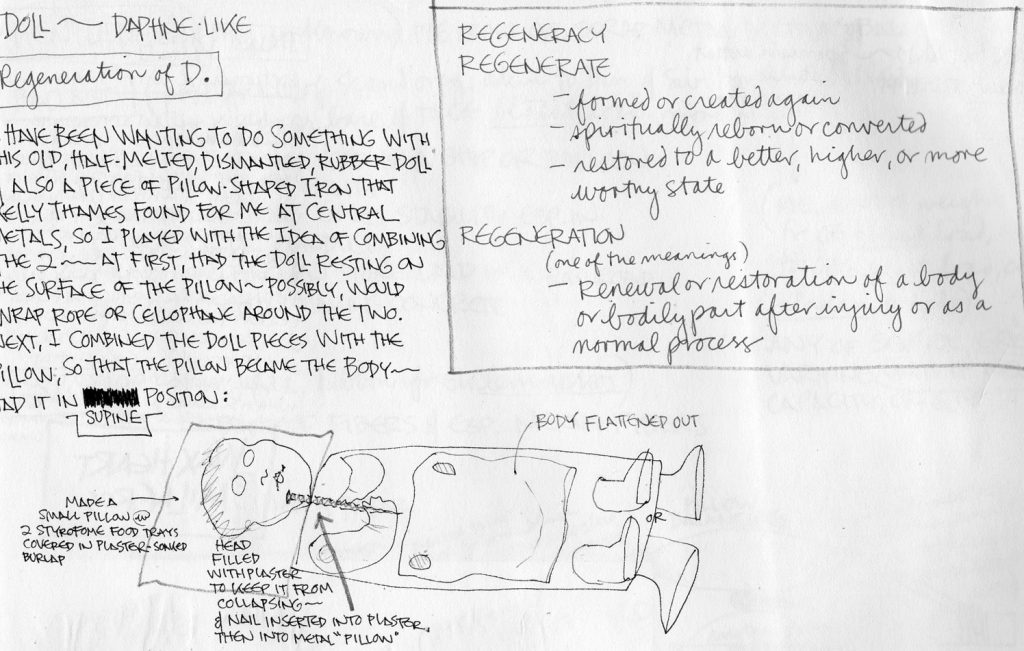 DOLL ~ DAPHNE-LIKE
Regeneration of D.
HAVE BEEN WANTING TO DO SOMETHING WITH
HIS OLD, HALF-MELTED, DISMANTLED, RUBBER DOLL
ALSO A PIECE OF PILLOW-SHAPED IRON THAT
KELLY THAMES FOUND FOR ME AT CENTRAL
METALS, SO I PLAYED WITH THE IDEA OF COMBINING
THE 2 ~~ AT FIRST, HAD THE DOLL RESTING ON
HE SURFACE OF THE PILLOW ~ POSSIBLY, WOULD
WRAP ROPE OR CELLOPHANE AROUND THE TWO.
NEXT, I COMBINED THE DOLL PIECES WITH THE
PILLOW, SO THAT THE PILLOW BECAME THE BODY ~
AD IT IN POSITION:
SUPINE
REGENERACY
REGENERATE
- formed or created again
- spiritually reborn or converted
- restored to a better, higher, or more
worthy state
REGENERATION
(one of the meanings)
- Renewal or restoration of a body
or bodily part after injury or as a
normal process
BODY FLATTENED OUT
MADE A
SMALL PILLOW w/
2 STYROFOME FOOD TRAYS
COVERED IN PLASTER-SOAKED
BURLAP
OR
HEAD
FILLED
WITH PLASTER
TO KEEP IT FROM
COLLAPSING ~
& NAIL INSERTED INTO PLASTER,
THEN INTO METAL "PILLOW"